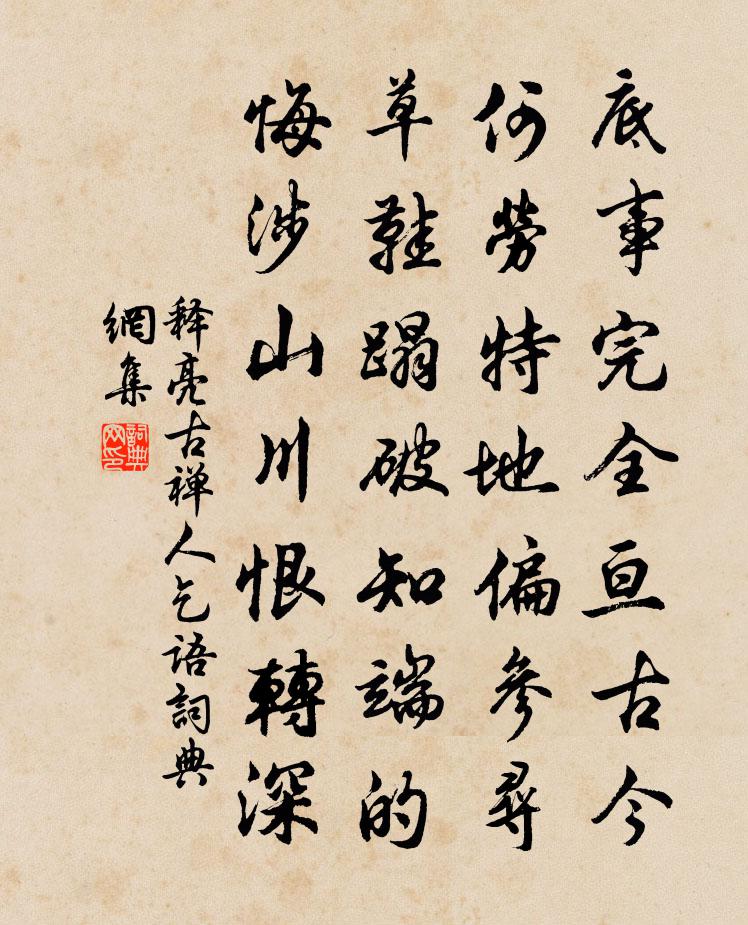 底事完全亘古今
何勞特地偏參尋
草鞋蹋破知端的
悔涉山川恨轉深
释亮古禅人乞语詞典
網集
詞典
网印